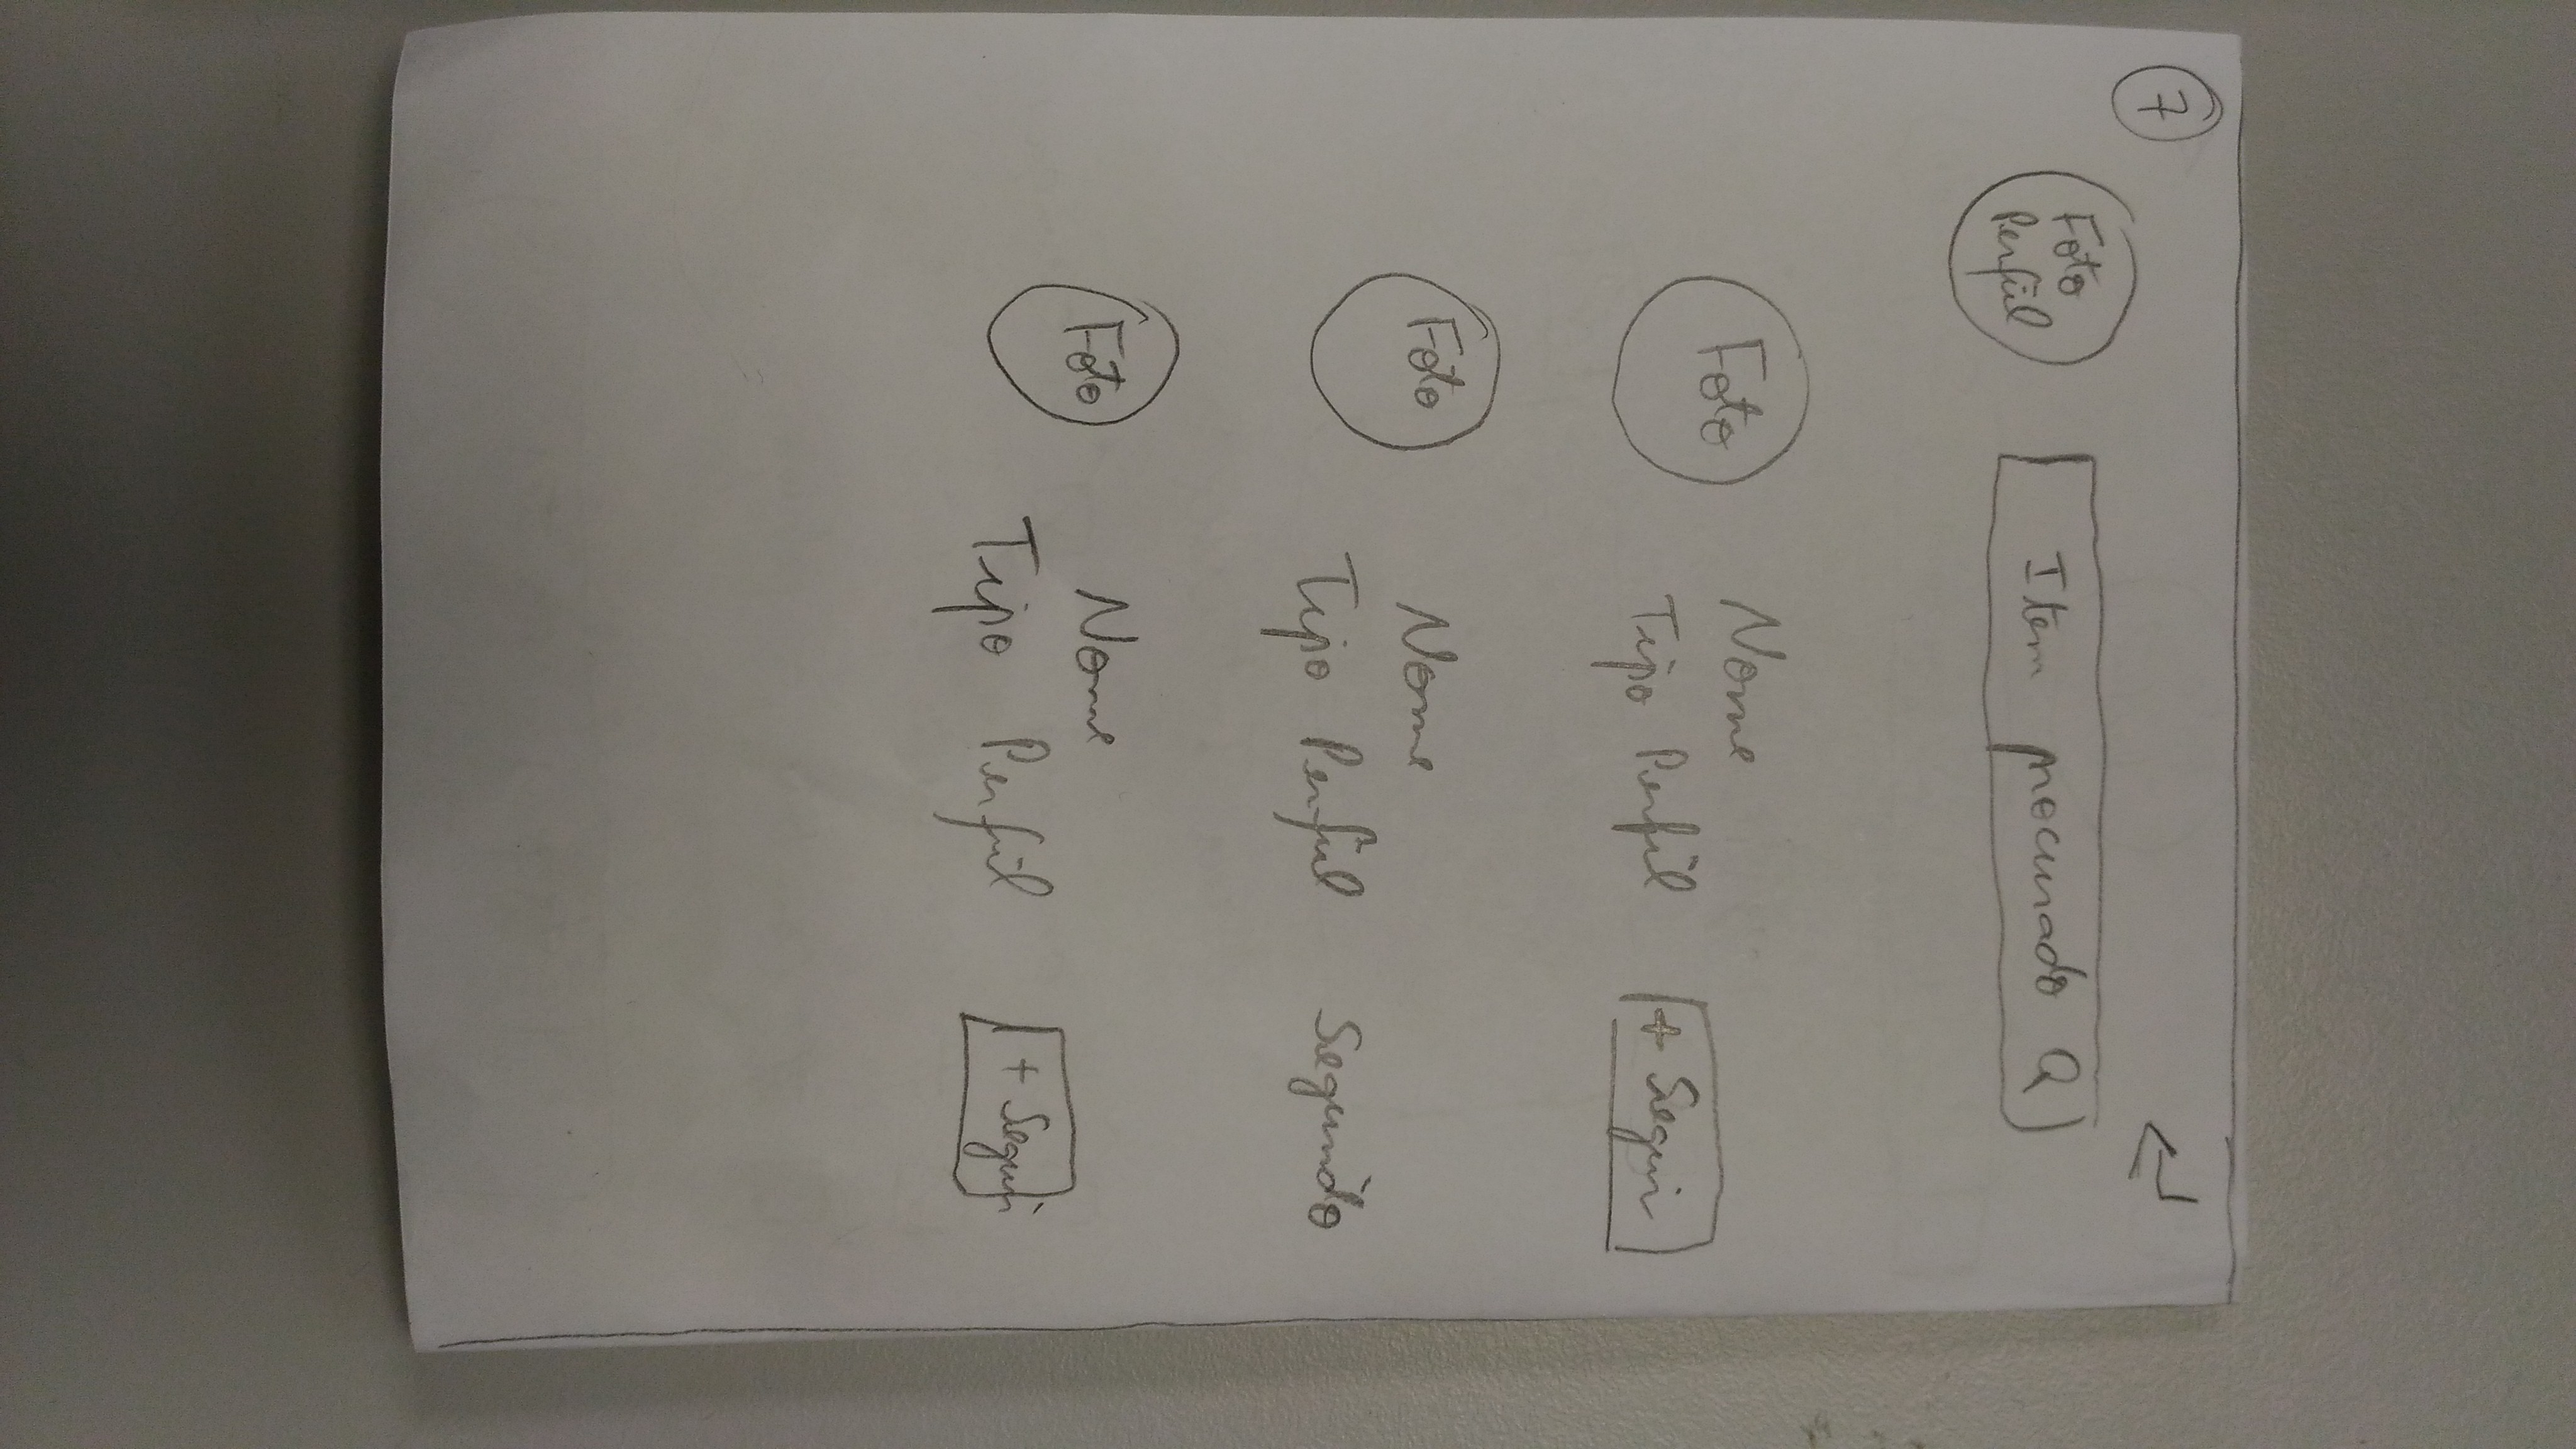 7
Foto
Perfil
Item procurado
Foto
Nome
Tipo Perfil
+ Seguir
Foto
Nome
Tipo Perfil
Seguindo
Foto
Nome
Tipo Perfil
+ Seguir